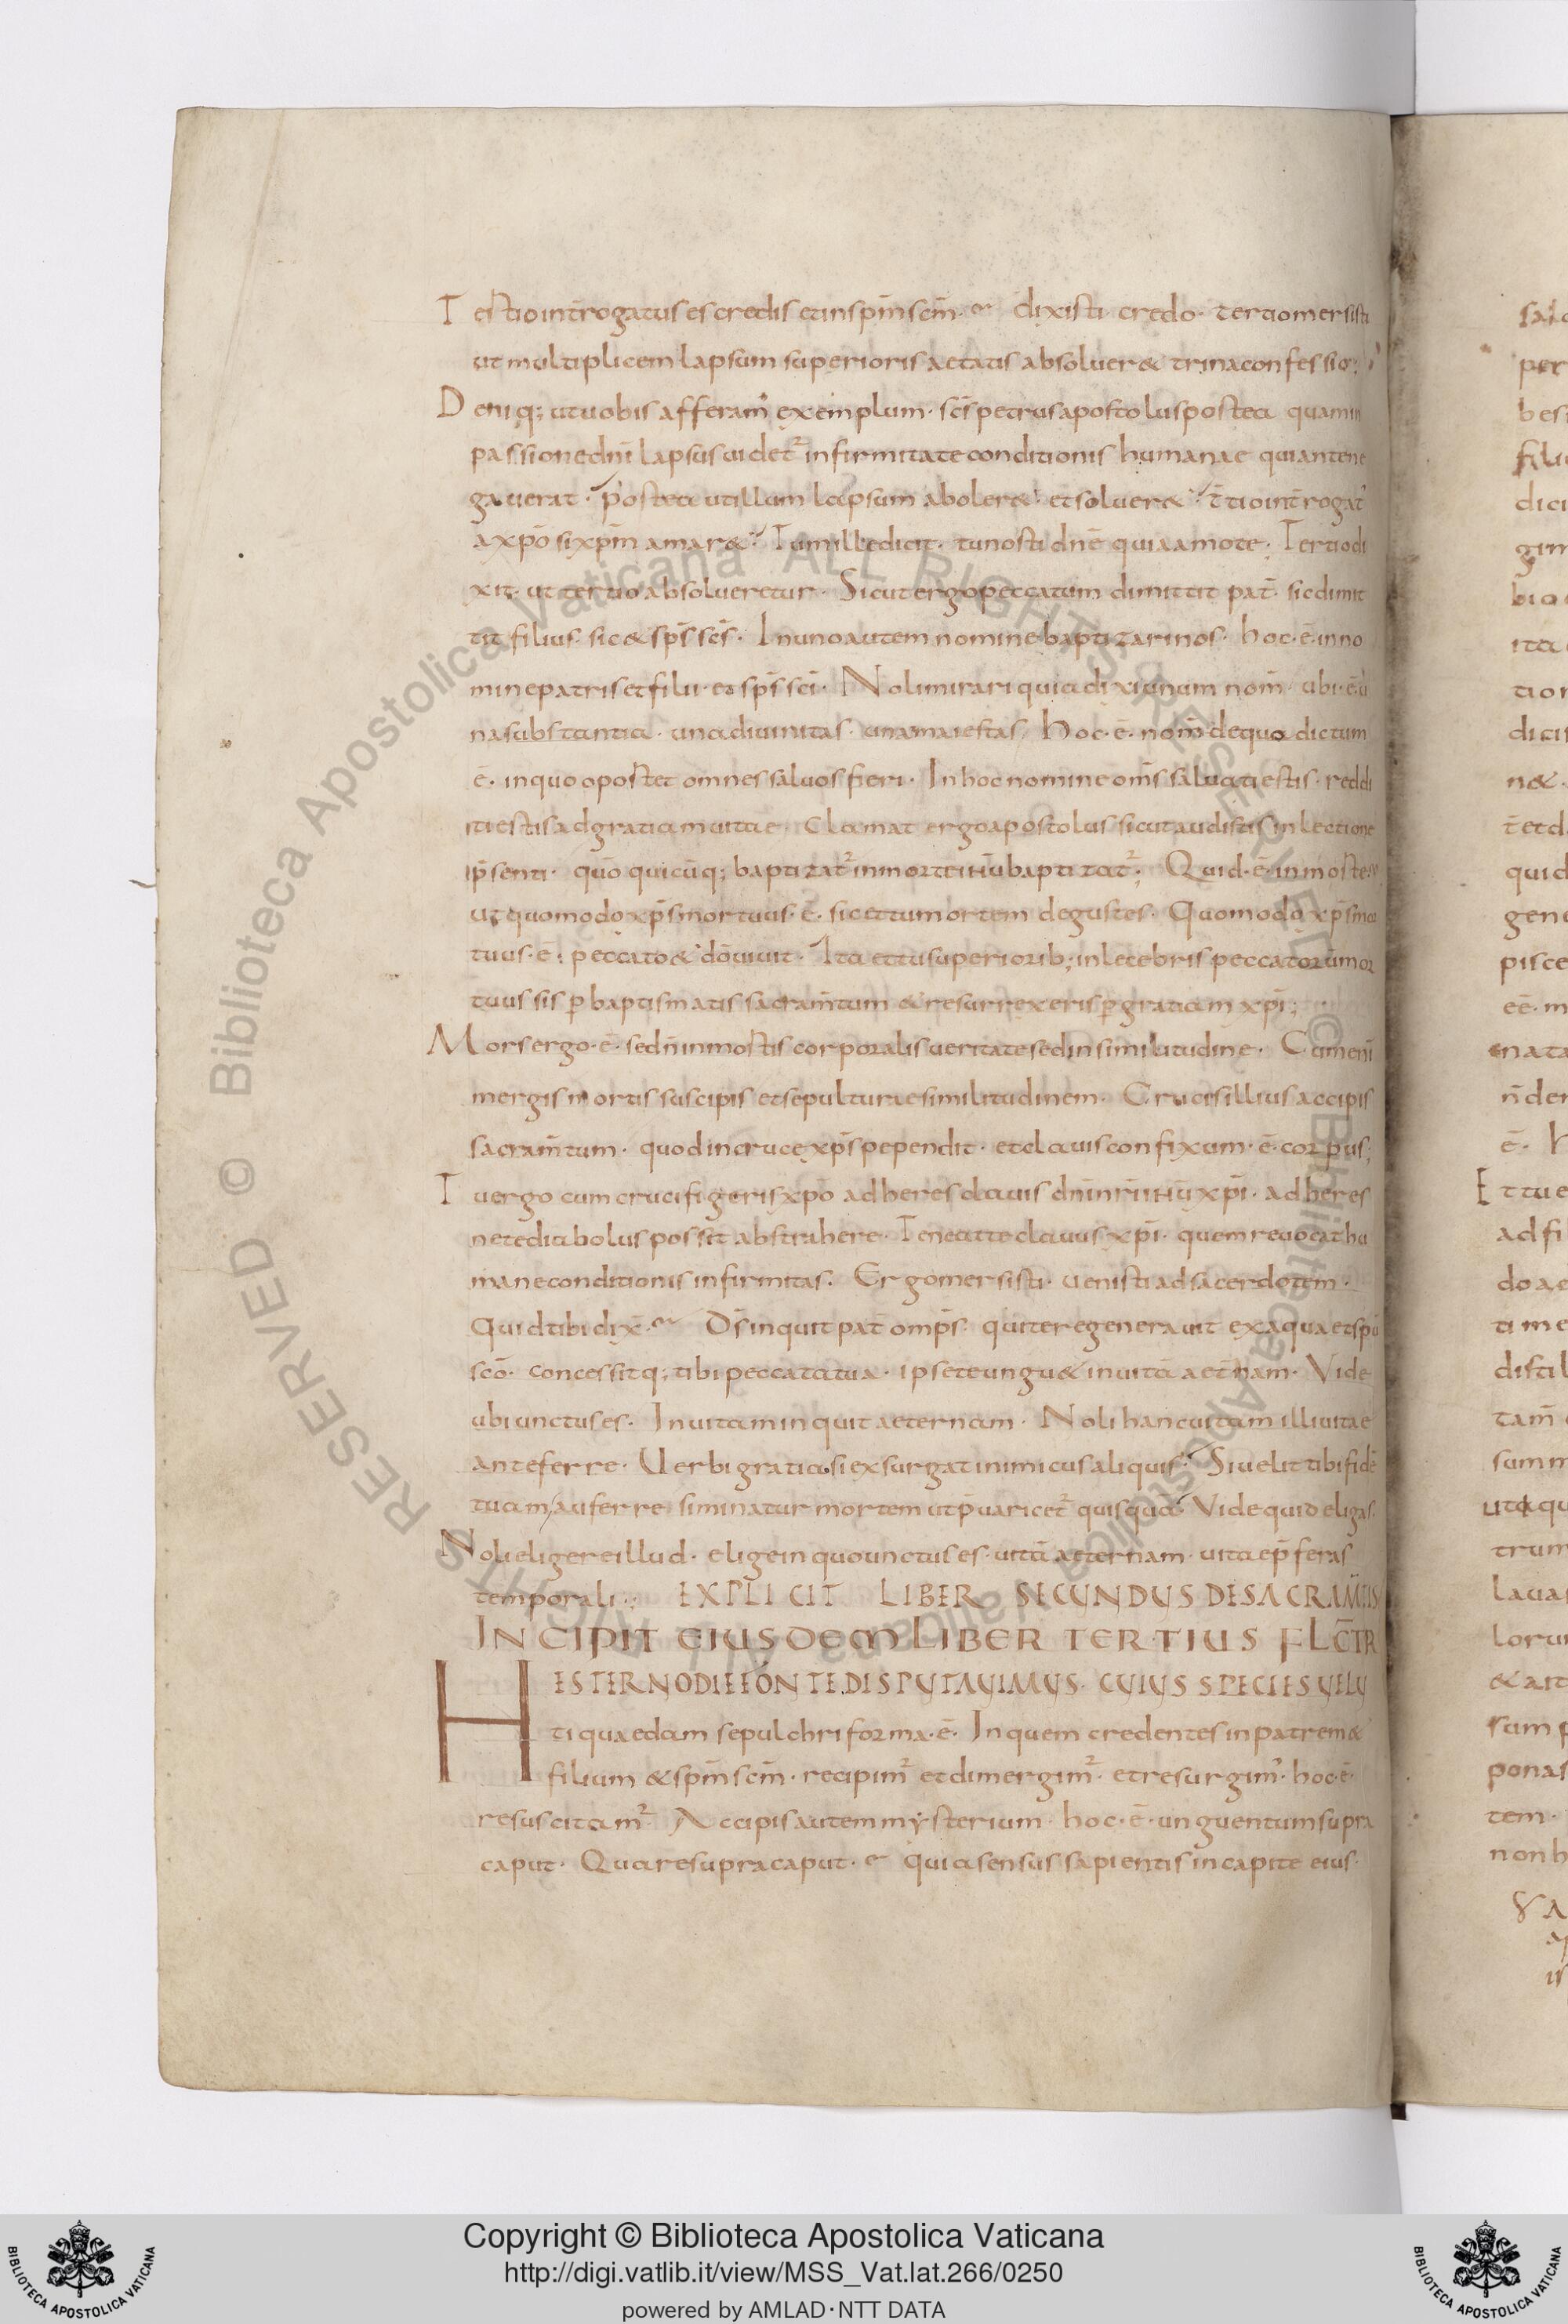 Testio int̄rogatus es credis et in sp̄m scm̄. dixisti credo. tertio mersisti
ut multiplicem lapsum superioris aetatis absolver& trina confessio;
Deniq; ut vobis afferam' exemplum. scs̄ petrus apostolus postea quam in
passione dn̄i lapsus videt' infirmitate conditionis humanae qui ante ne
gaverat. postea ut illum lapsum aboler& et solver& t̄tio int̄rogat'
a xp̄o si xp̄m amar& Tum ille dicit. tu nosti dn̄e quia amo te. Tertio di
xit. ut tertio absolveretur. Sicut ergo peccatum dimittit pat̄. sic dimit
tit filius. sic & sp̄s scs̄. In uno autem nomine baptizari nos. hoc. ē. in no
mine patris et filii. et sp̄s sc̄i. Noli mirari quia dixi unum nom̄. ubi. ē. u
na substantia. una divinitas. una maiestas, Hoc. ē. nom̄ de quo dictum
ē. in quo oportet omnes salvos fieri. In hoc nomine om̄s salvati estis. reddi
ti estis ad gratiam vitae. Clamat ergo apostolus sicut audistis in lectione
p̄senti. qūo quicūq; baptizat' in morte ihū baptizat'; Quid. ē. in morte
ut quomodo xp̄s mortuus. ē. sic et tu mortem degustes. Quomodo xp̄s mor
tuus. ē. peccato & dō vivit. Ita et tu superiorib; inlecebris peccatorū mor
tuus sis p baptismatis sacram̄tum & resurrexeris p gratiam xp̄i;
Mors ergo. ē. sed n̄ in mortis corporalis veritate sed in similitudine. Cum enī
mergis mortis suscipis et sepulturae similitudinem. Crucis illius accipis
sacram̄tum. quod in cruce xp̄s pependit. et clavis confixum. ē. corpus;
Tu ergo cum crucifigeris xpo adheres clavis dn̄i nr̄i ihū xp̄i. adheres
ne te diabolus possit abstrahere. Teneat te clavus xp̄i. quem revocat hu
mane conditionis infirmitas. Ergo mersisti. venisti ad sacerdotem.
Quid tibi dix̄. Ds̄ inquit pat̄ omp̄s. qui te regeneravit ex aqua et sp̄u
sc̄o. concessitq; tibi peccata tua. ipse te ungu& in vitā aet̄nam. Vide
ubi unctus es. In vitam inquit aeternam. Noli hanc vitam illi vitae
anteferre. Verbi gratia si exsurgat inimicus aliquis. Si velit tibi fidē
tuam auferre. si minatur mortem ut p̄varicet' quisquā Vide quid eligas.
Noli eligere illud. elige in quo unctus es. vitā aeternam. vitae p̄feras
temporali; EXPLICIT LIBER SECUNDUS DE SACRAM̄TIS
INCIPIT EIUSDEM LIBER TERTIUS FLC̄TR
HESTERNO DIE FONTE DISPUTAUIMUS. CUIUS SPECIES UELU
ti quaedam sepulchri forma. ē. In quem credentes in patrem &
filium & sp̄m scm̄. recipim' et dimergim'. et resurgim'. hoc. ē.
resuscitam' Accipis autem mysterium. hoc. ē. unguentum supra
caput. Quare supra caput. quia sensus sapientis in capite eius.
Copyright © Biblioteca Apostolica Vaticana
http://digi.vatlib.it/view/MSS_Vat.lat.266/0250
powered by AMLAD·NTT DATA